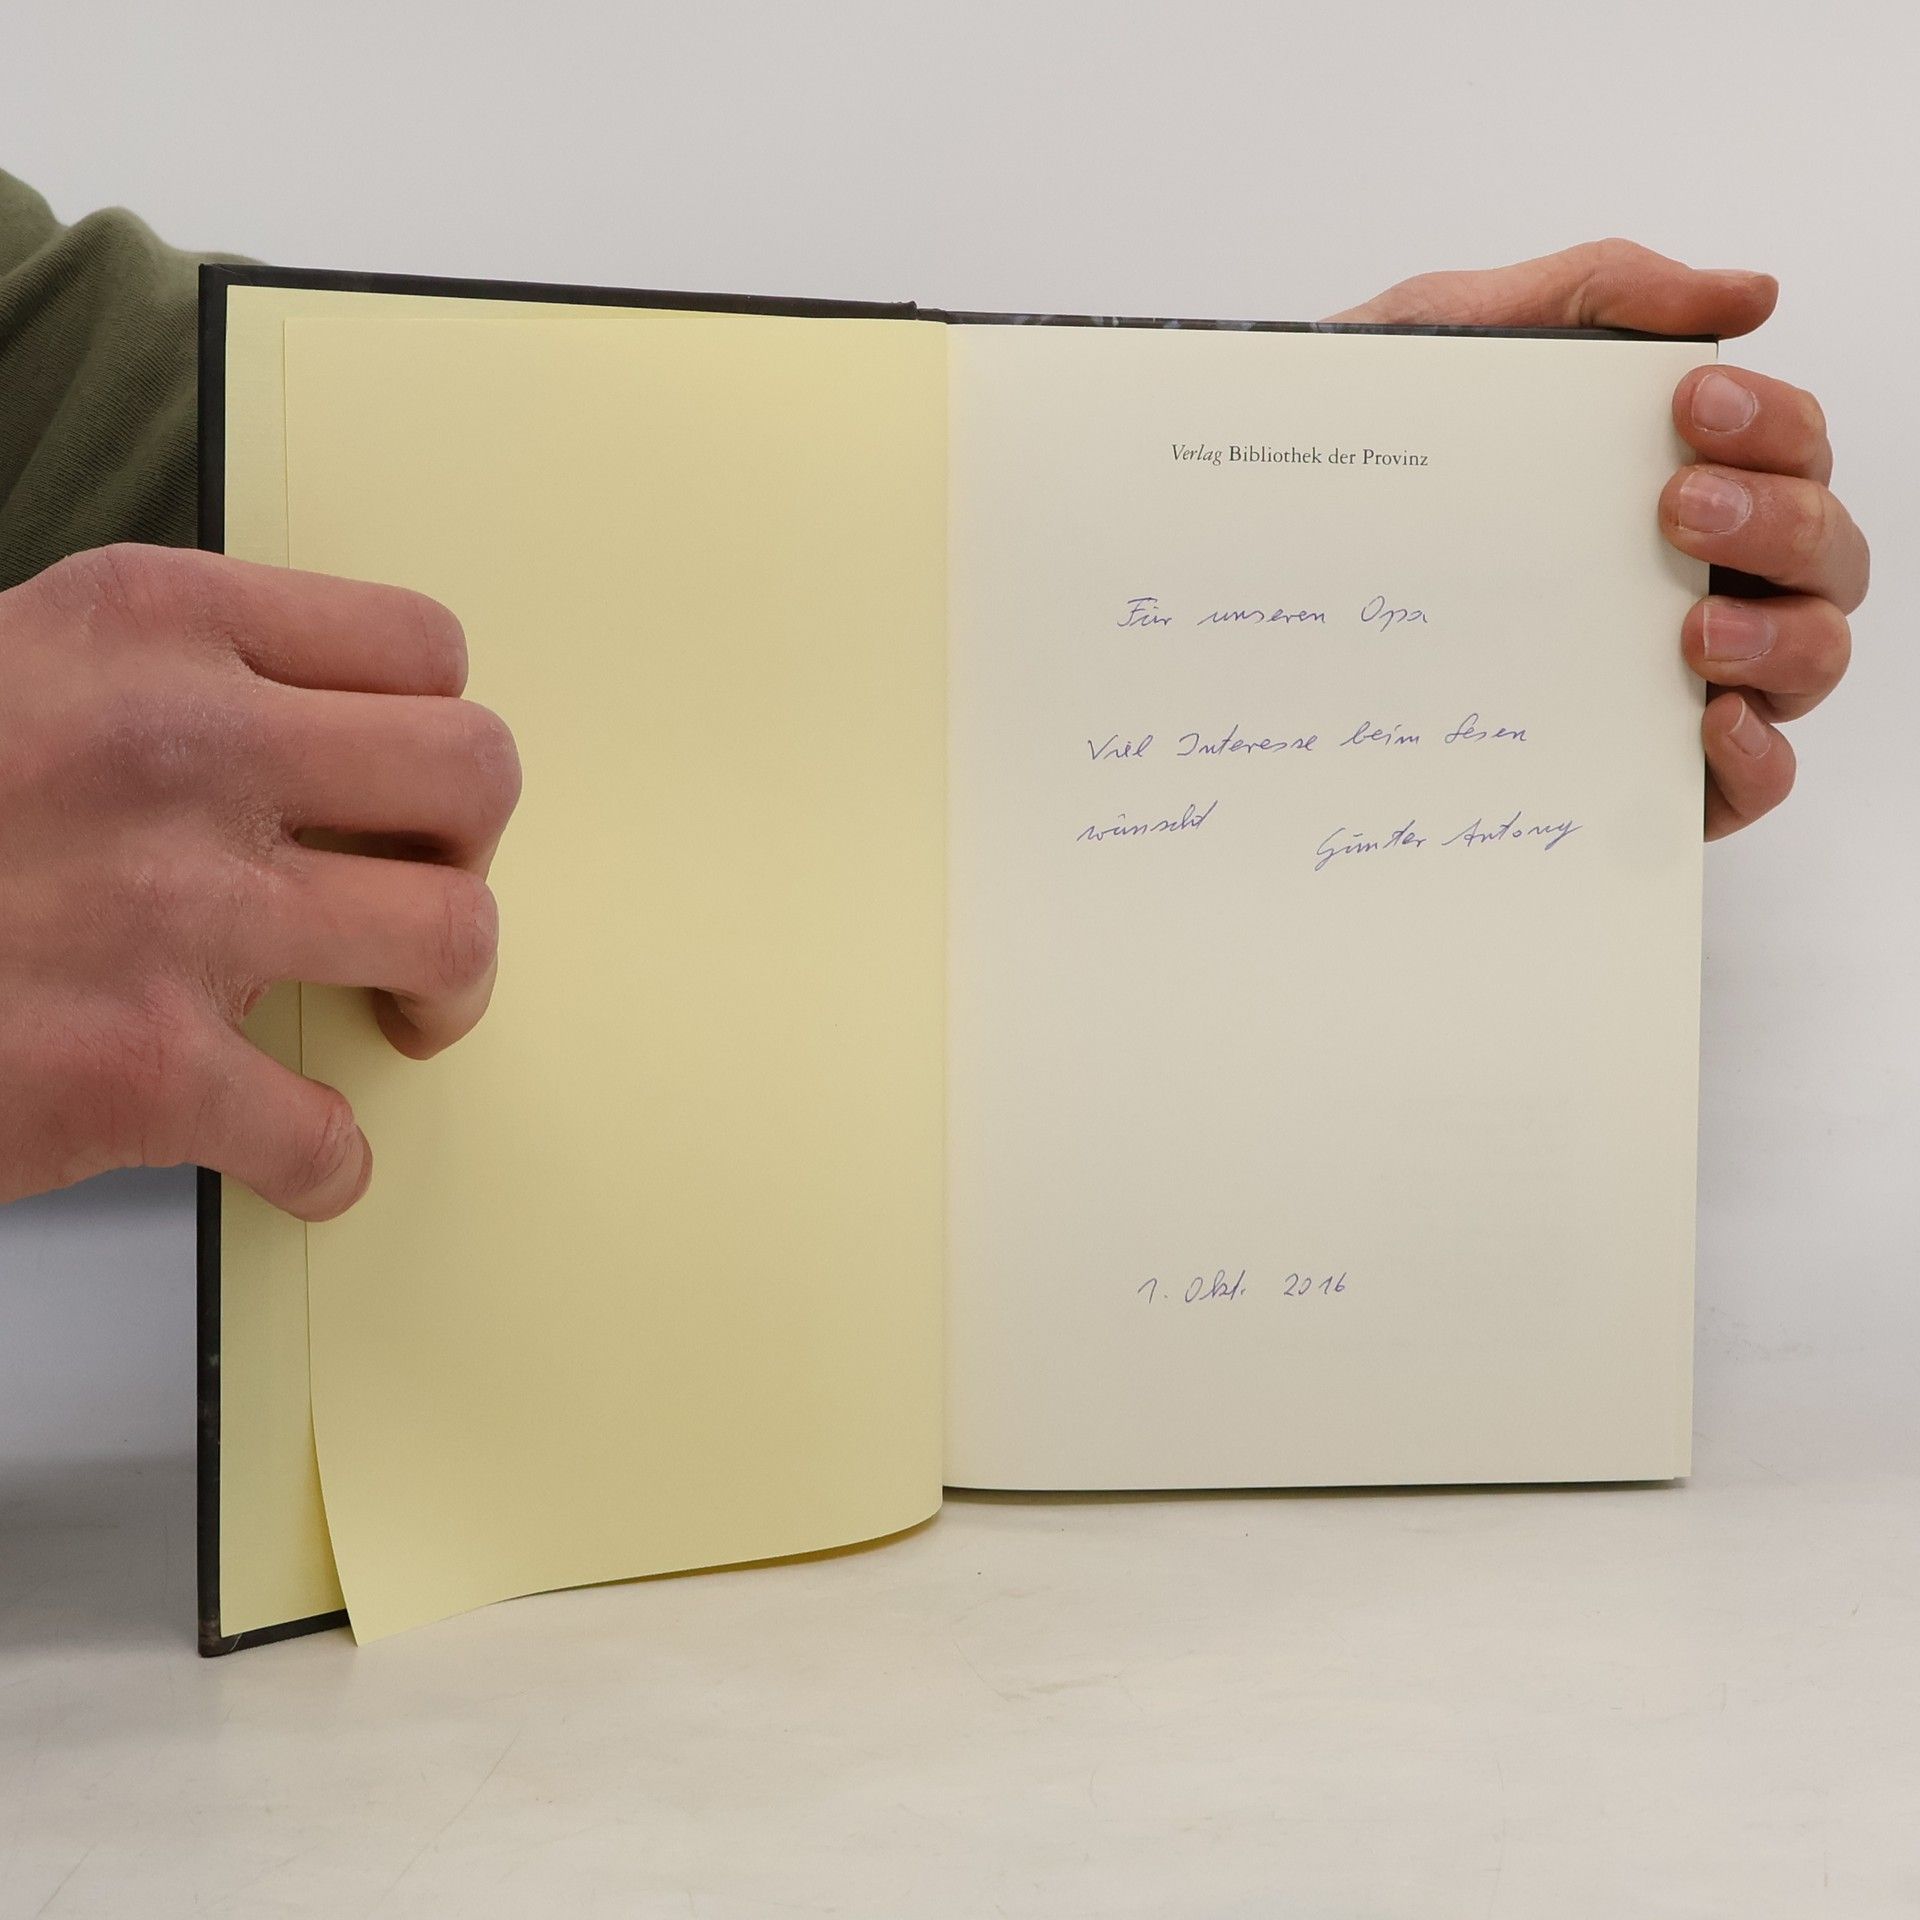 Verlag Bibliothek der Provinz
Für unseren Opa
Viel Interesse beim Lesen
wünscht Günter Antony
1. Okt. 2016